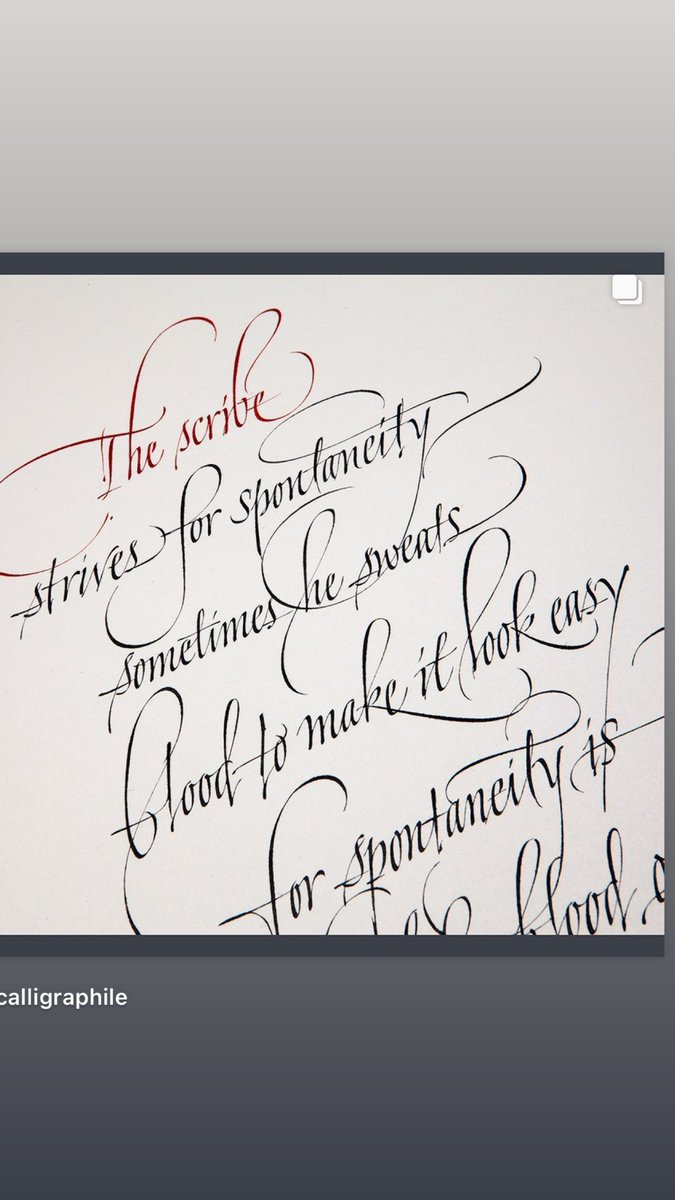 The scribe
strives for spontaneity
sometimes he sweats
blood to make it look easy
for spontaneity is
blood
calligraphile